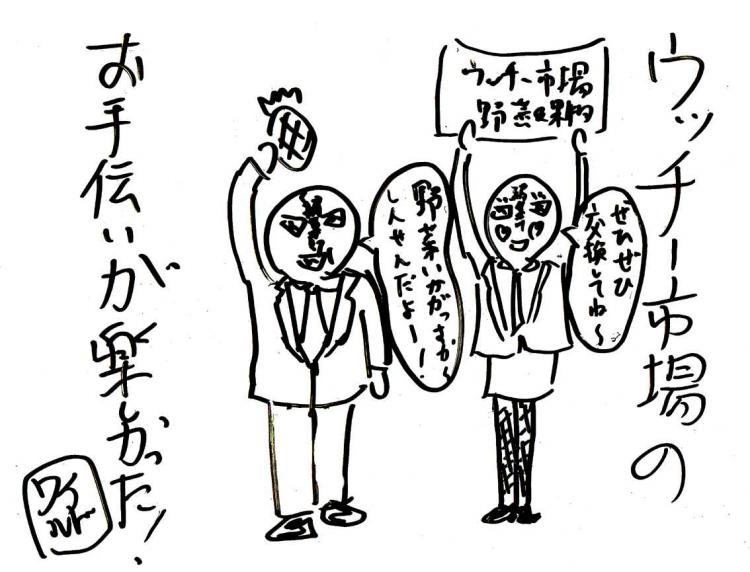 ウッチー市場の
ウッチー市場
野菜果物
ぜひぜひ
交換してね〜
野菜いかがっすか〜
しんせんだよー!
お手伝いが楽しかった!
ワイ
ルド